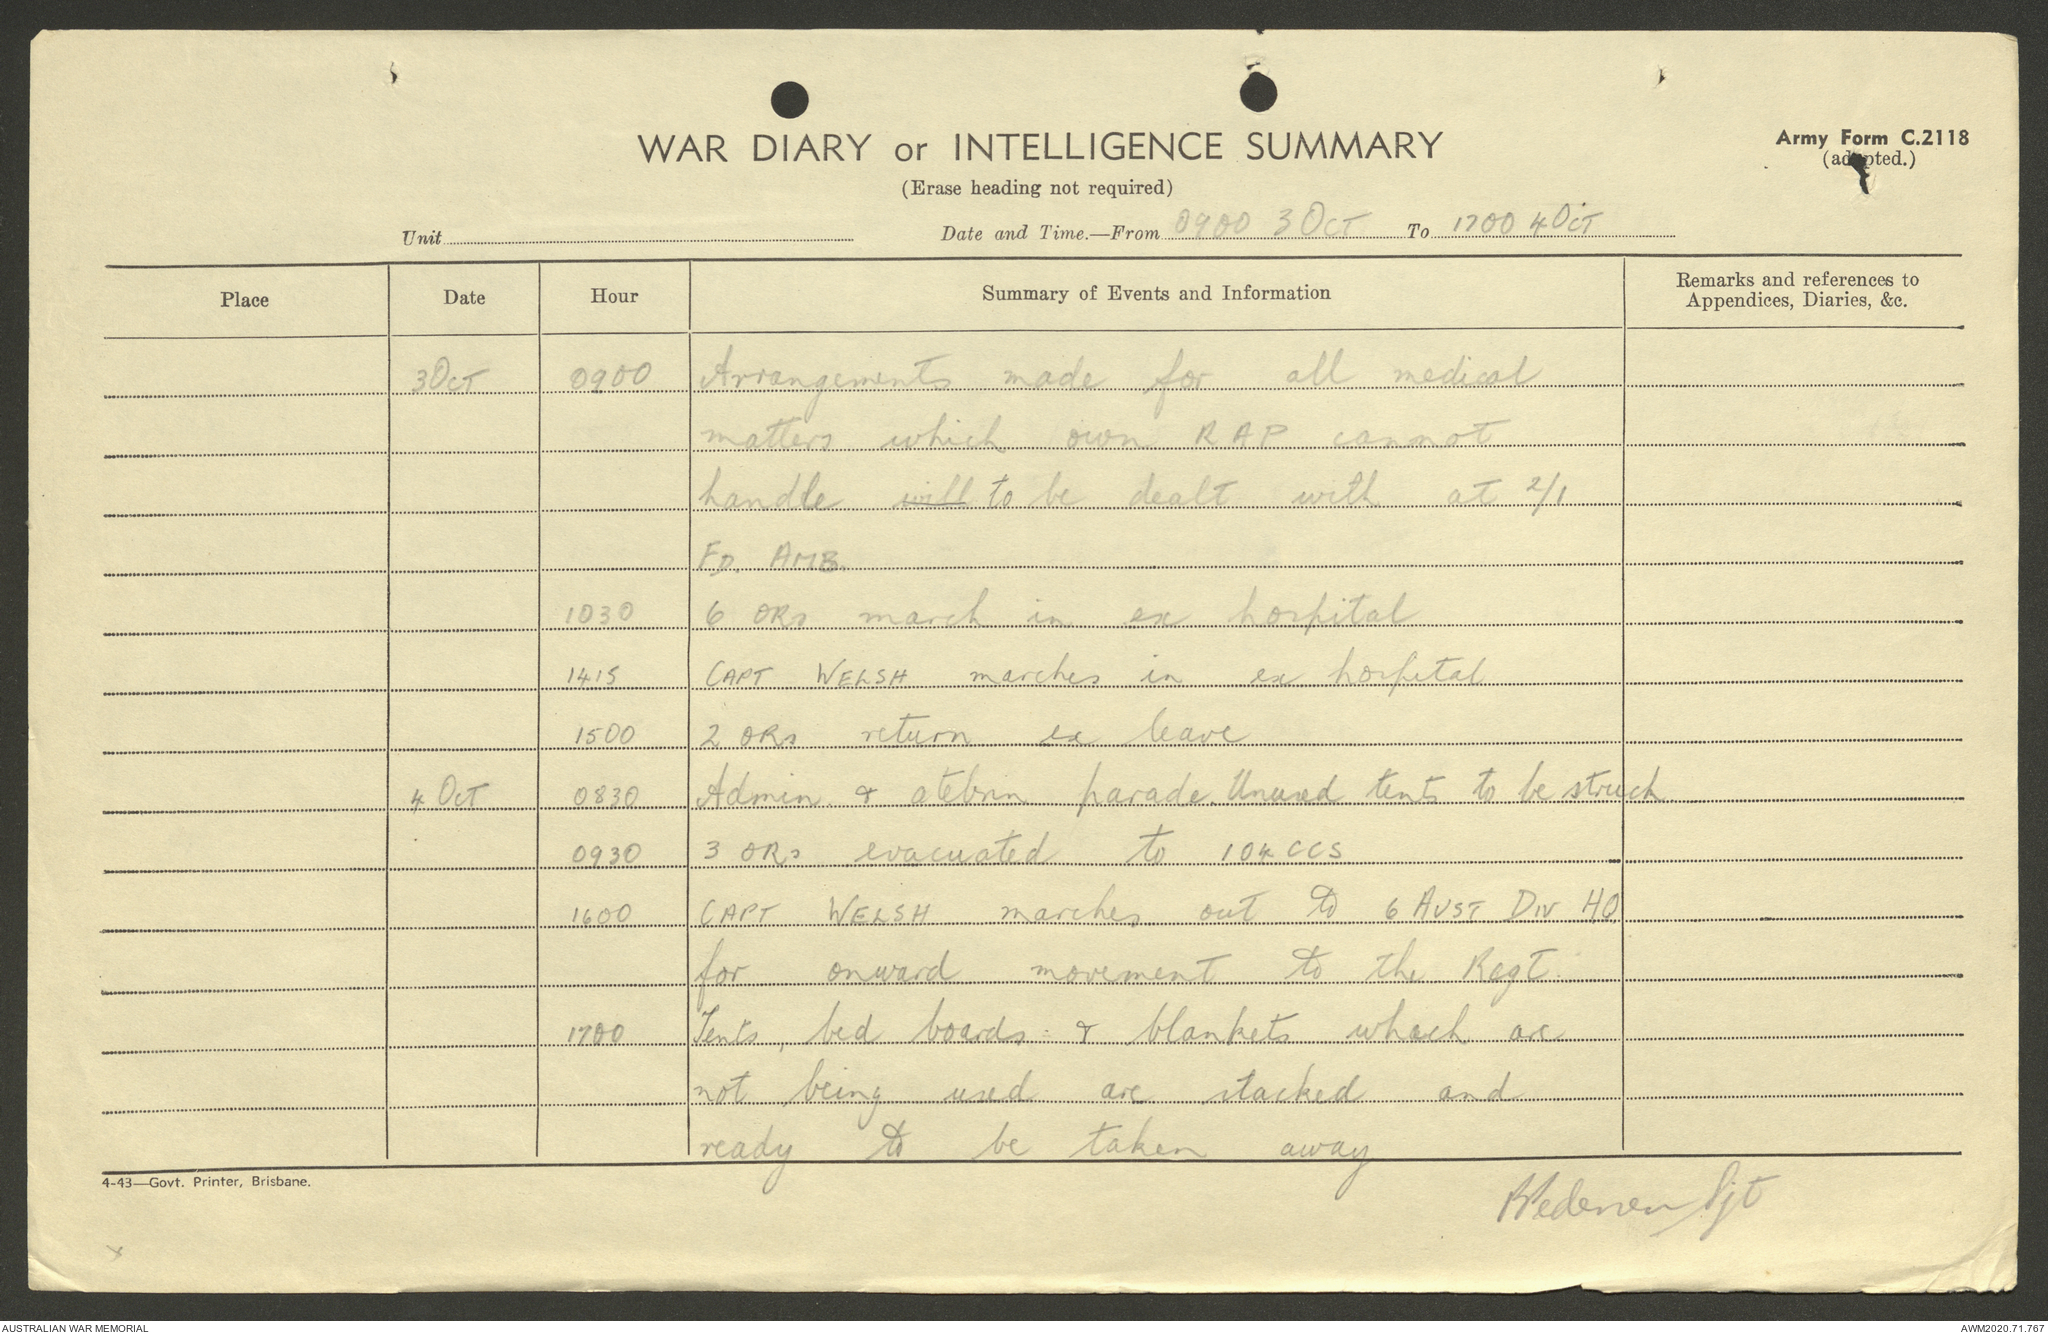 WAR DIARY or INTELLIGENCE SUMMARY
Army Form C.2118
(adapted.)
(Erase heading not required)
Unit
Date and Time.—From 0900 3 OCT To 1700 4 OCT
Place Date Hour Summary of Events and Information Remarks and references to
Appendices, Diaries, &c.
3 OCT 0900 Arrangements made for all medical
matters which own RAP cannot
handle will to be dealt with at 2/1
FD. AMB.
1030 6 ORs march in ex hospital
1415 CAPT WELSH marches in ex hospital
1500 2 ORs return ex leave
4 OCT 0830 Admin. & atebrin parade. Unused tents to be struck
0930 3 ORs evacuated to 104 CCS
1600 CAPT WELSH marches out to 6 AUST DIV HQ
for onward movement to the Regt.
1700 Tents, bed boards & blankets whach are
not being used are stacked and
ready to be taken away
4-43—Govt. Printer, Brisbane.
Sjt
AUSTRALIAN WAR MEMORIAL
AWM2020.71.767